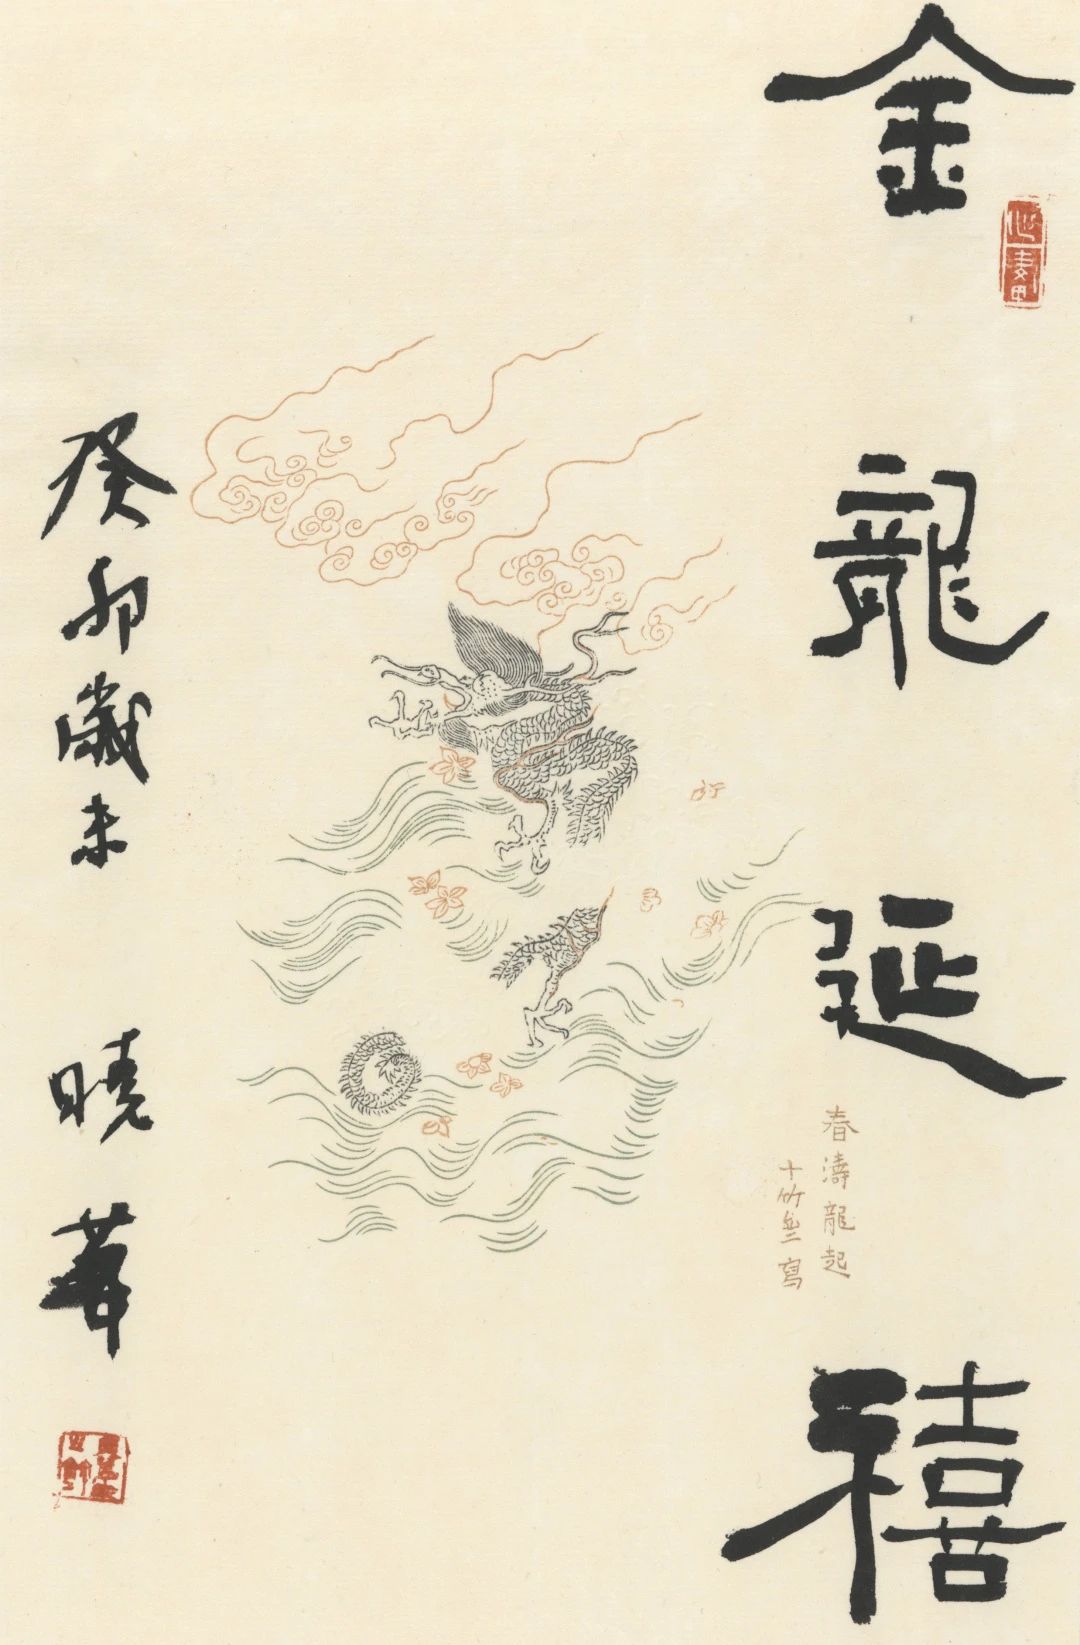 金龍延禧
春濤龍起
十竹齋寫
癸卯歲末 曉葦